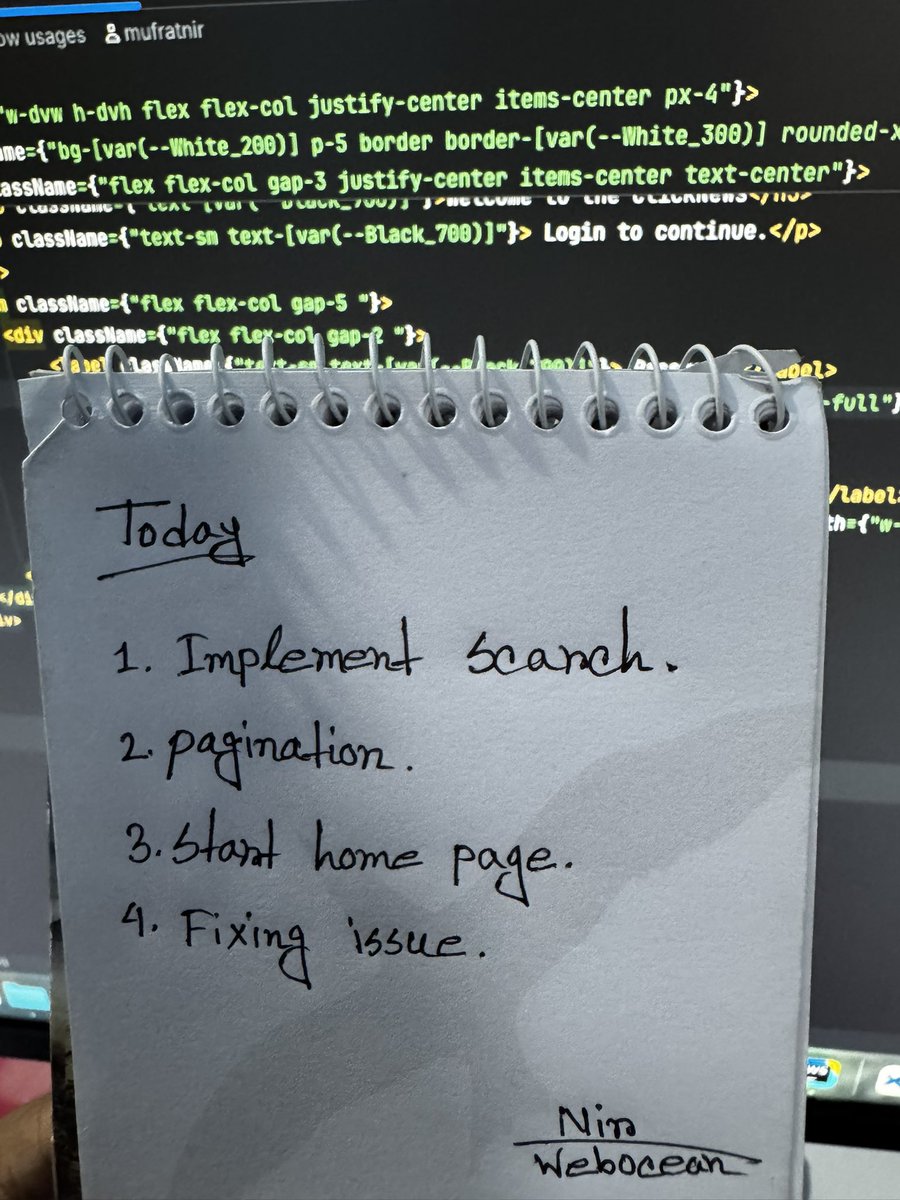 ow usages mufratnir
"w-dvw h-dvh flex flex-col justify-center items-center px-4"}>
ame={"bg-[var(--White_200)] p-5 border border-[var(--White_300)] rounded-x
assName={"flex flex-col gap-3 justify-center items-center text-center"}>
className={"text-[var(--Black_700)]"}>Welcome to the ClickNews</h3>
className={"text-sm text-[var(--Black_700)]"}> Login to continue.</p>
>
className={"flex flex-col gap-5 "}>
<div className={"flex flex-col gap-2 "}>
-full"}
/label>
th={"w-
</di
iv>
Today
1. Implement search.
2. pagination.
3. Start home page.
4. Fixing issue.
Nir
Webocean